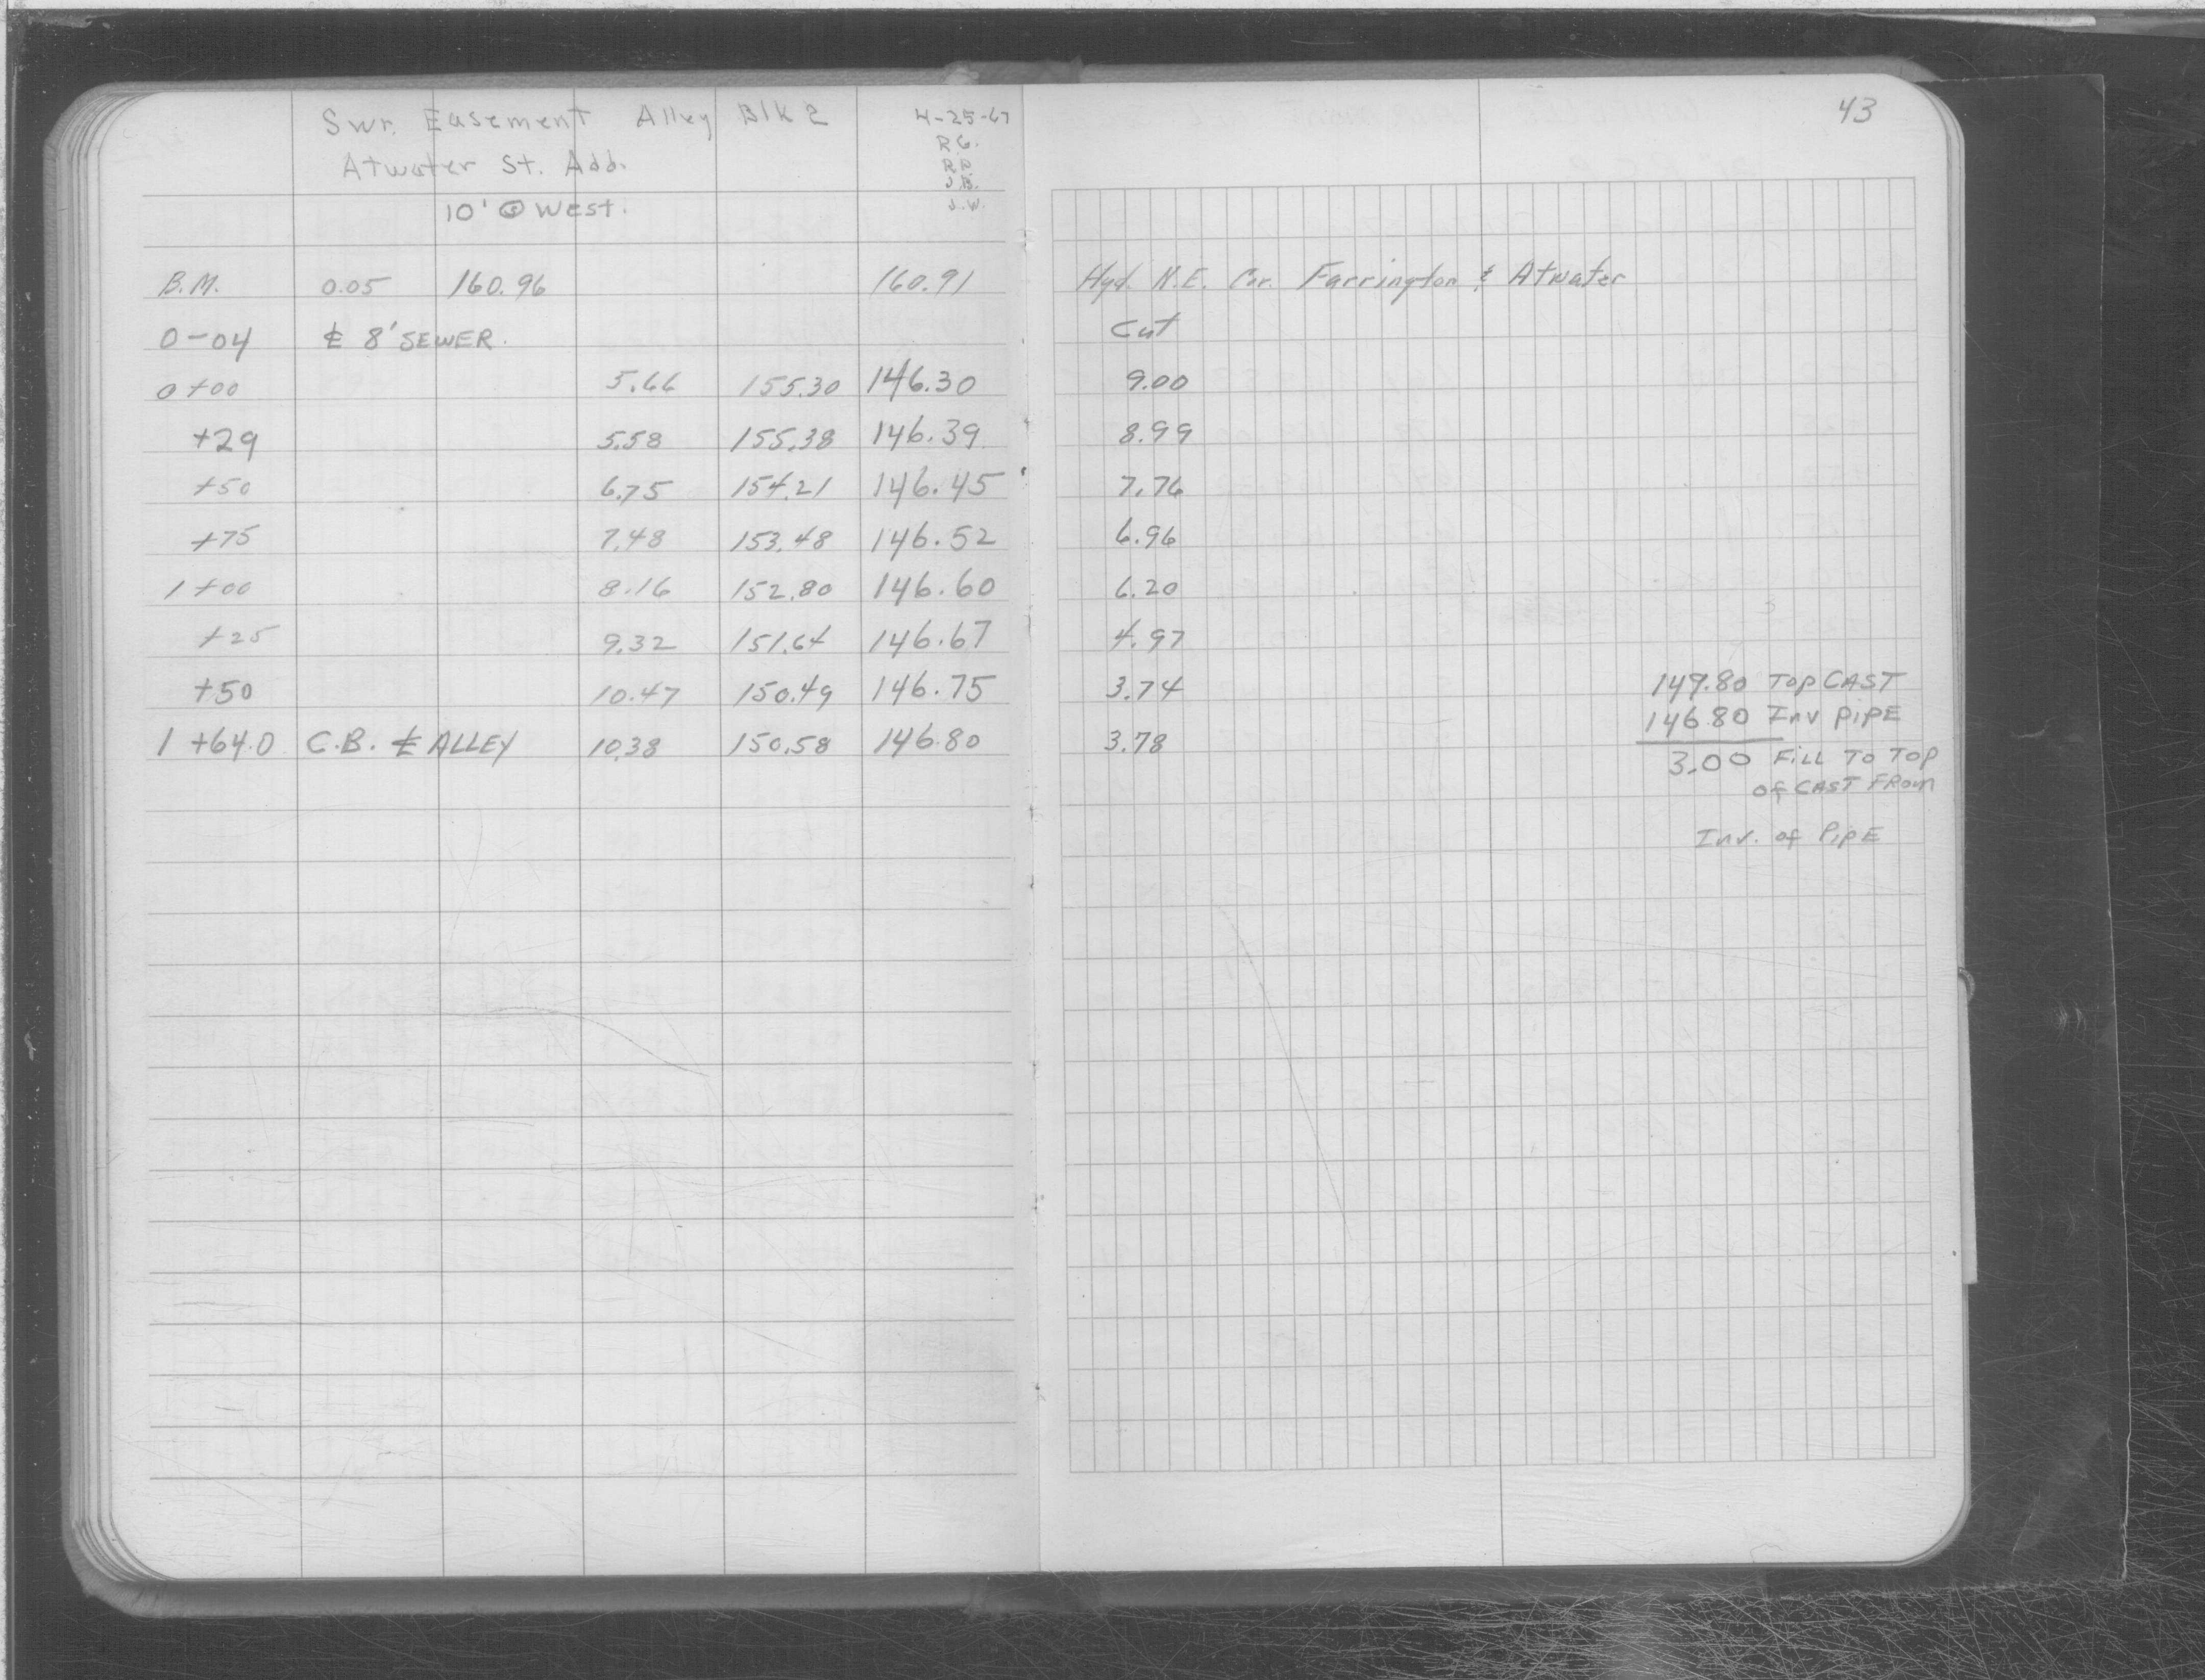 43
Swr. Easement Alley Blk 2 4-25-67
R.G.
Atwater St. Add. R.P.
J.B.
10' @ West. J.W.
B.M. 0.05 160.96 160.91 Hyd. N.E. Cor. Farrington & Atwater
0-04 ℄ 8' SEWER. Cut
0+00 5.66 155.30 146.30 9.00
+29 5.58 155.38 146.39 8.99
+50 6.75 154.21 146.45 7.76
+75 7.48 153.48 146.52 6.96
1+00 8.16 152.80 146.60 6.20
+25 9.32 151.64 146.67 4.97
+50 10.47 150.49 146.75 3.74 149.80 Top CAST
146.80 Inv PiPE
1+64.0 C.B. ℄ ALLEY 10.38 150.58 146.80 3.78 3.00 FiLL To Top
of CAST FRom
Inv. of PipE